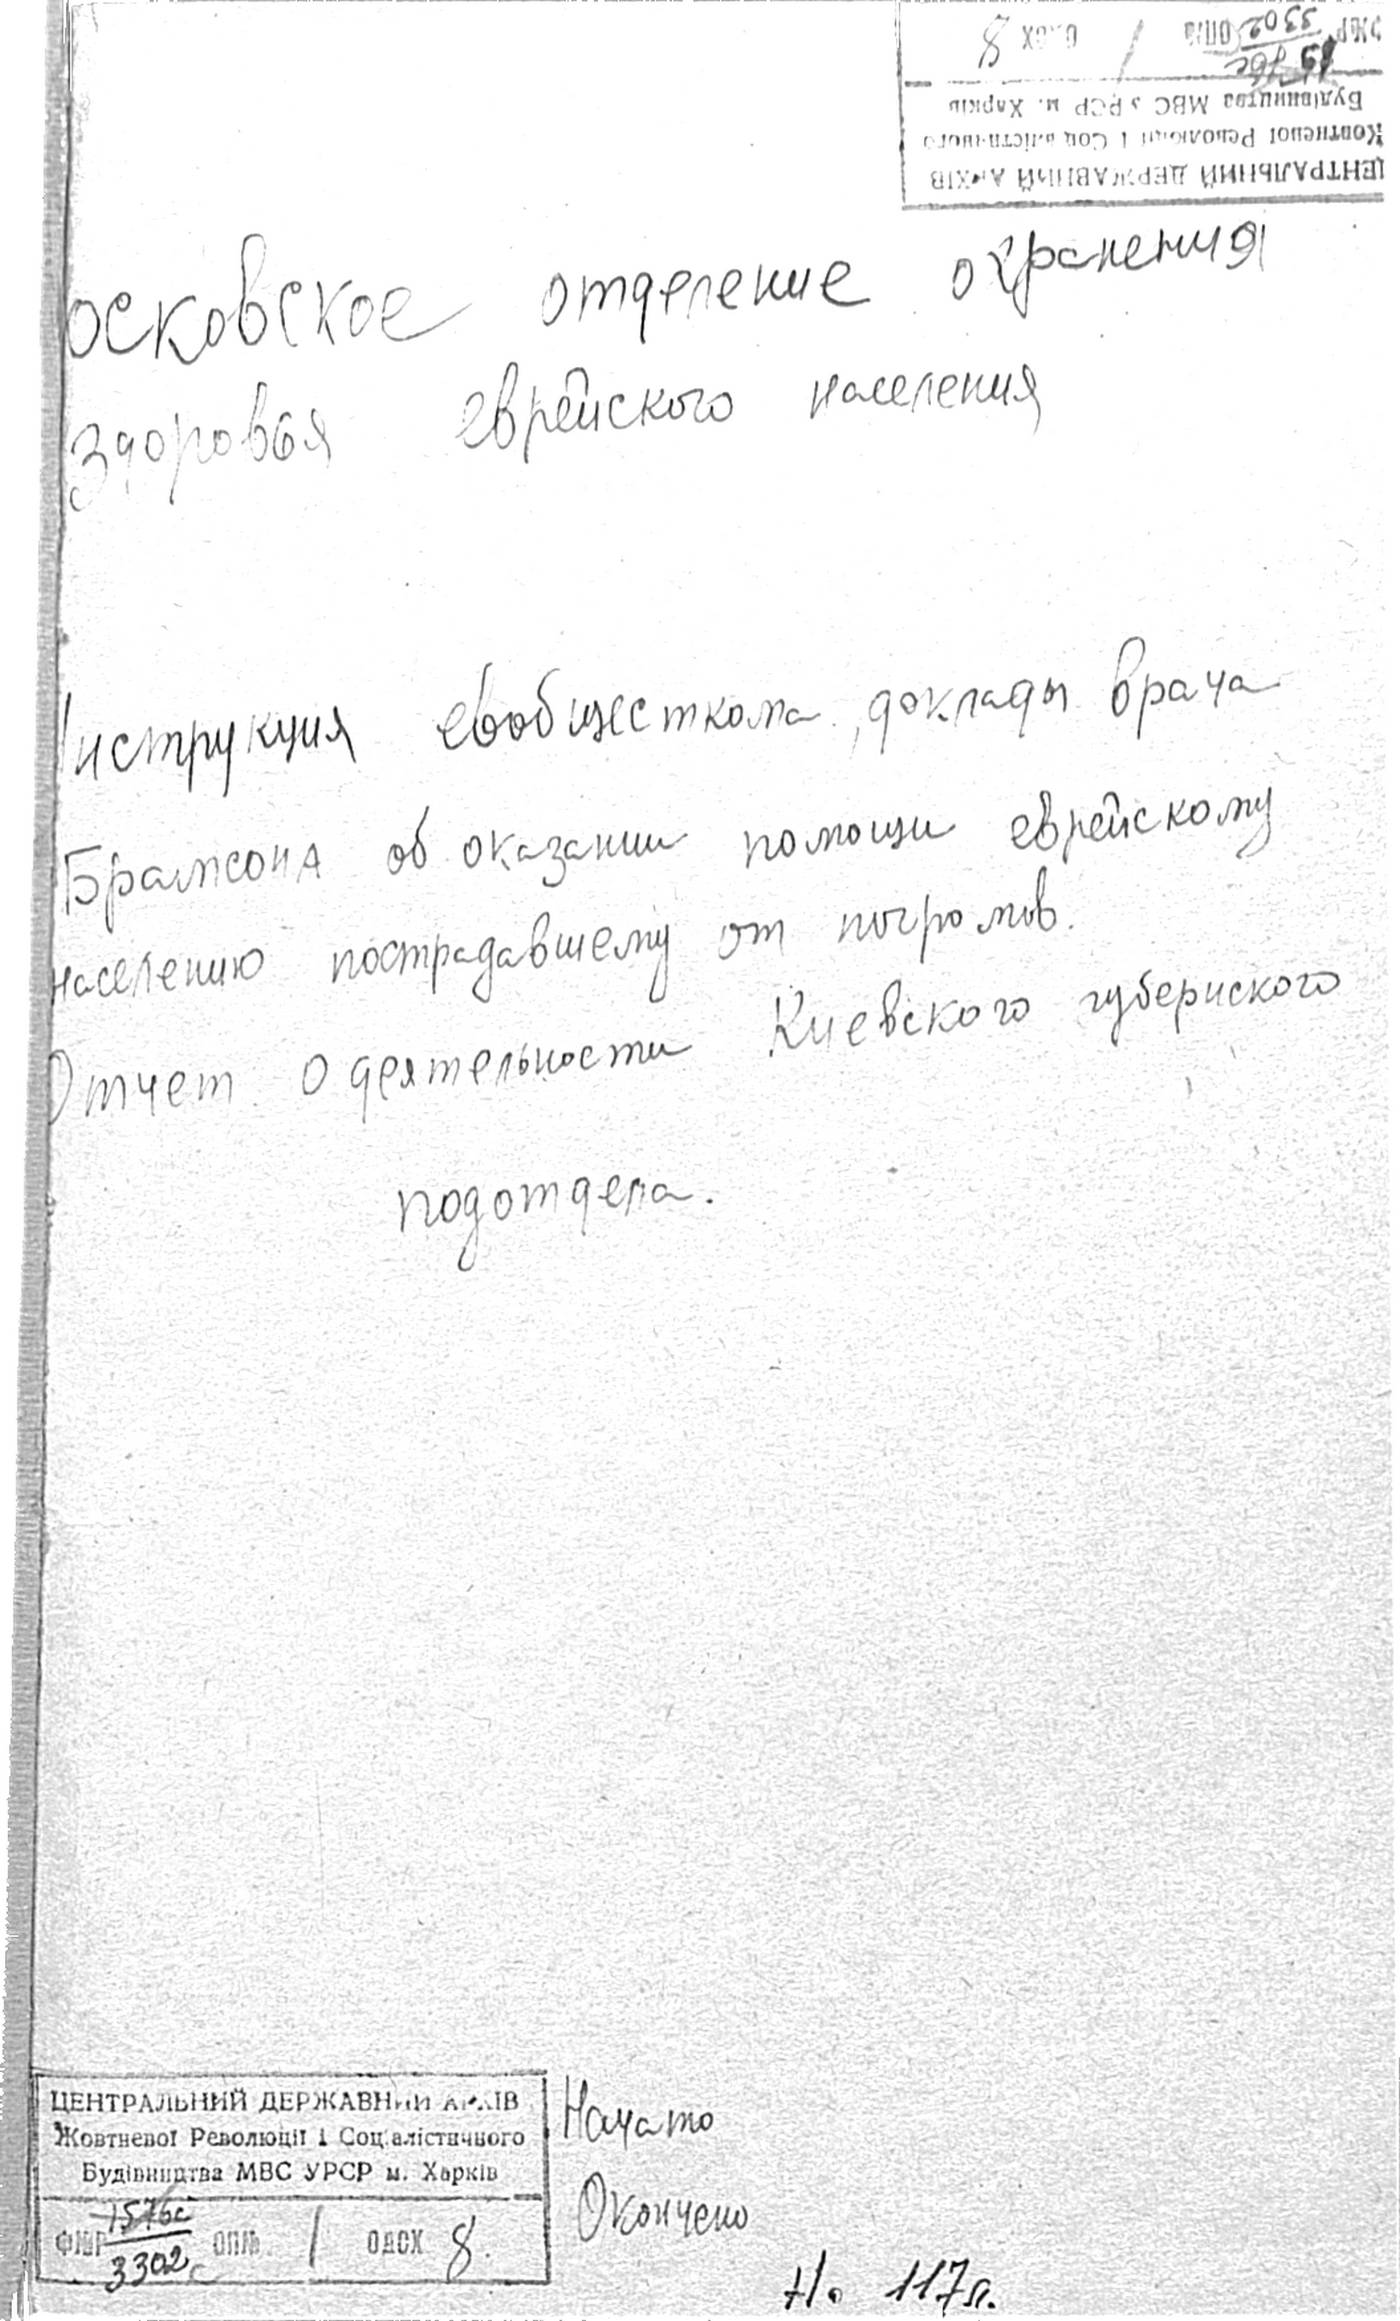 ЦЕНТРАЛЬНИЙ ДЕРЖАВНИЙ АРХІВ
Жовтневої Революції і Соціалістичного
Будівництва МВС УРСР м. Харків
3302 ОПИС 1 8
осковское отделение охранения
здоровья еврейского населения
Инструкция евобщесткома, доклады врача
Брамсона об оказании помощи еврейскому
населению пострадавшему от погромов.
Отчет о деятельности Киевского губериского
подотдела.
ЦЕНТРАЛЬНИЙ ДЕРЖАВНИЙ АРХІВ
Жовтневої Революції і Соціалістичного
Будівництва МВС УРСР м. Харків
1576с
3302с 1 ОДСХ 8.
Начато
Окончено
На 117л.